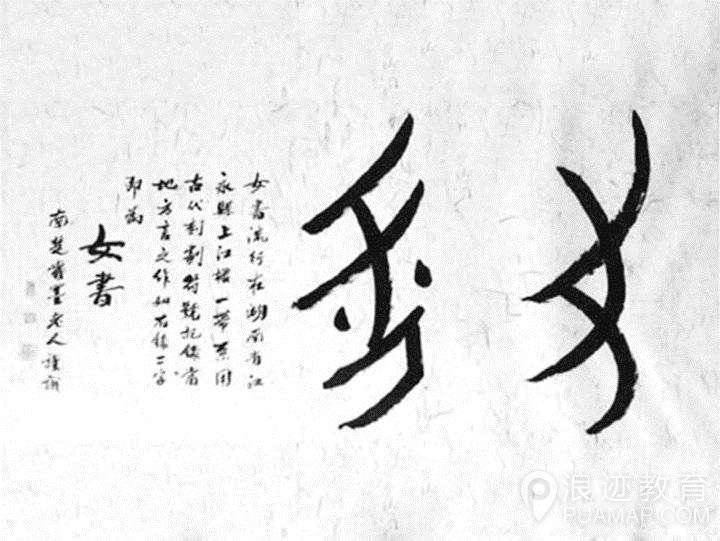 女書流行在湖南省江
永縣上江墟一帶系用
古代刻劃符號記錄
地方言之作如右錄二字
即為
女書
南楚墨老人
浪迹教育
PUAMAP.COM